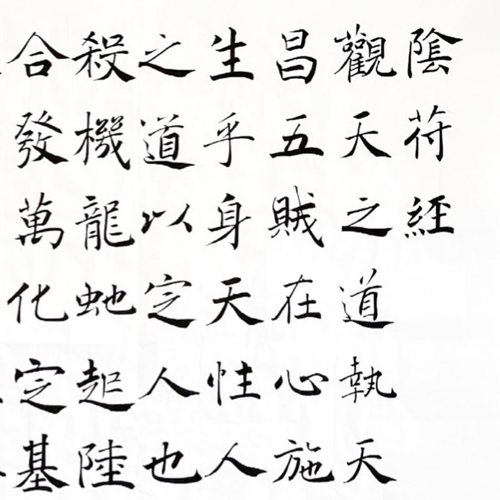 陰符經
觀天之道執天
昌五賊在心施
生乎身天性人
之道以定人也
殺機龍虵起陸
合發萬化定基